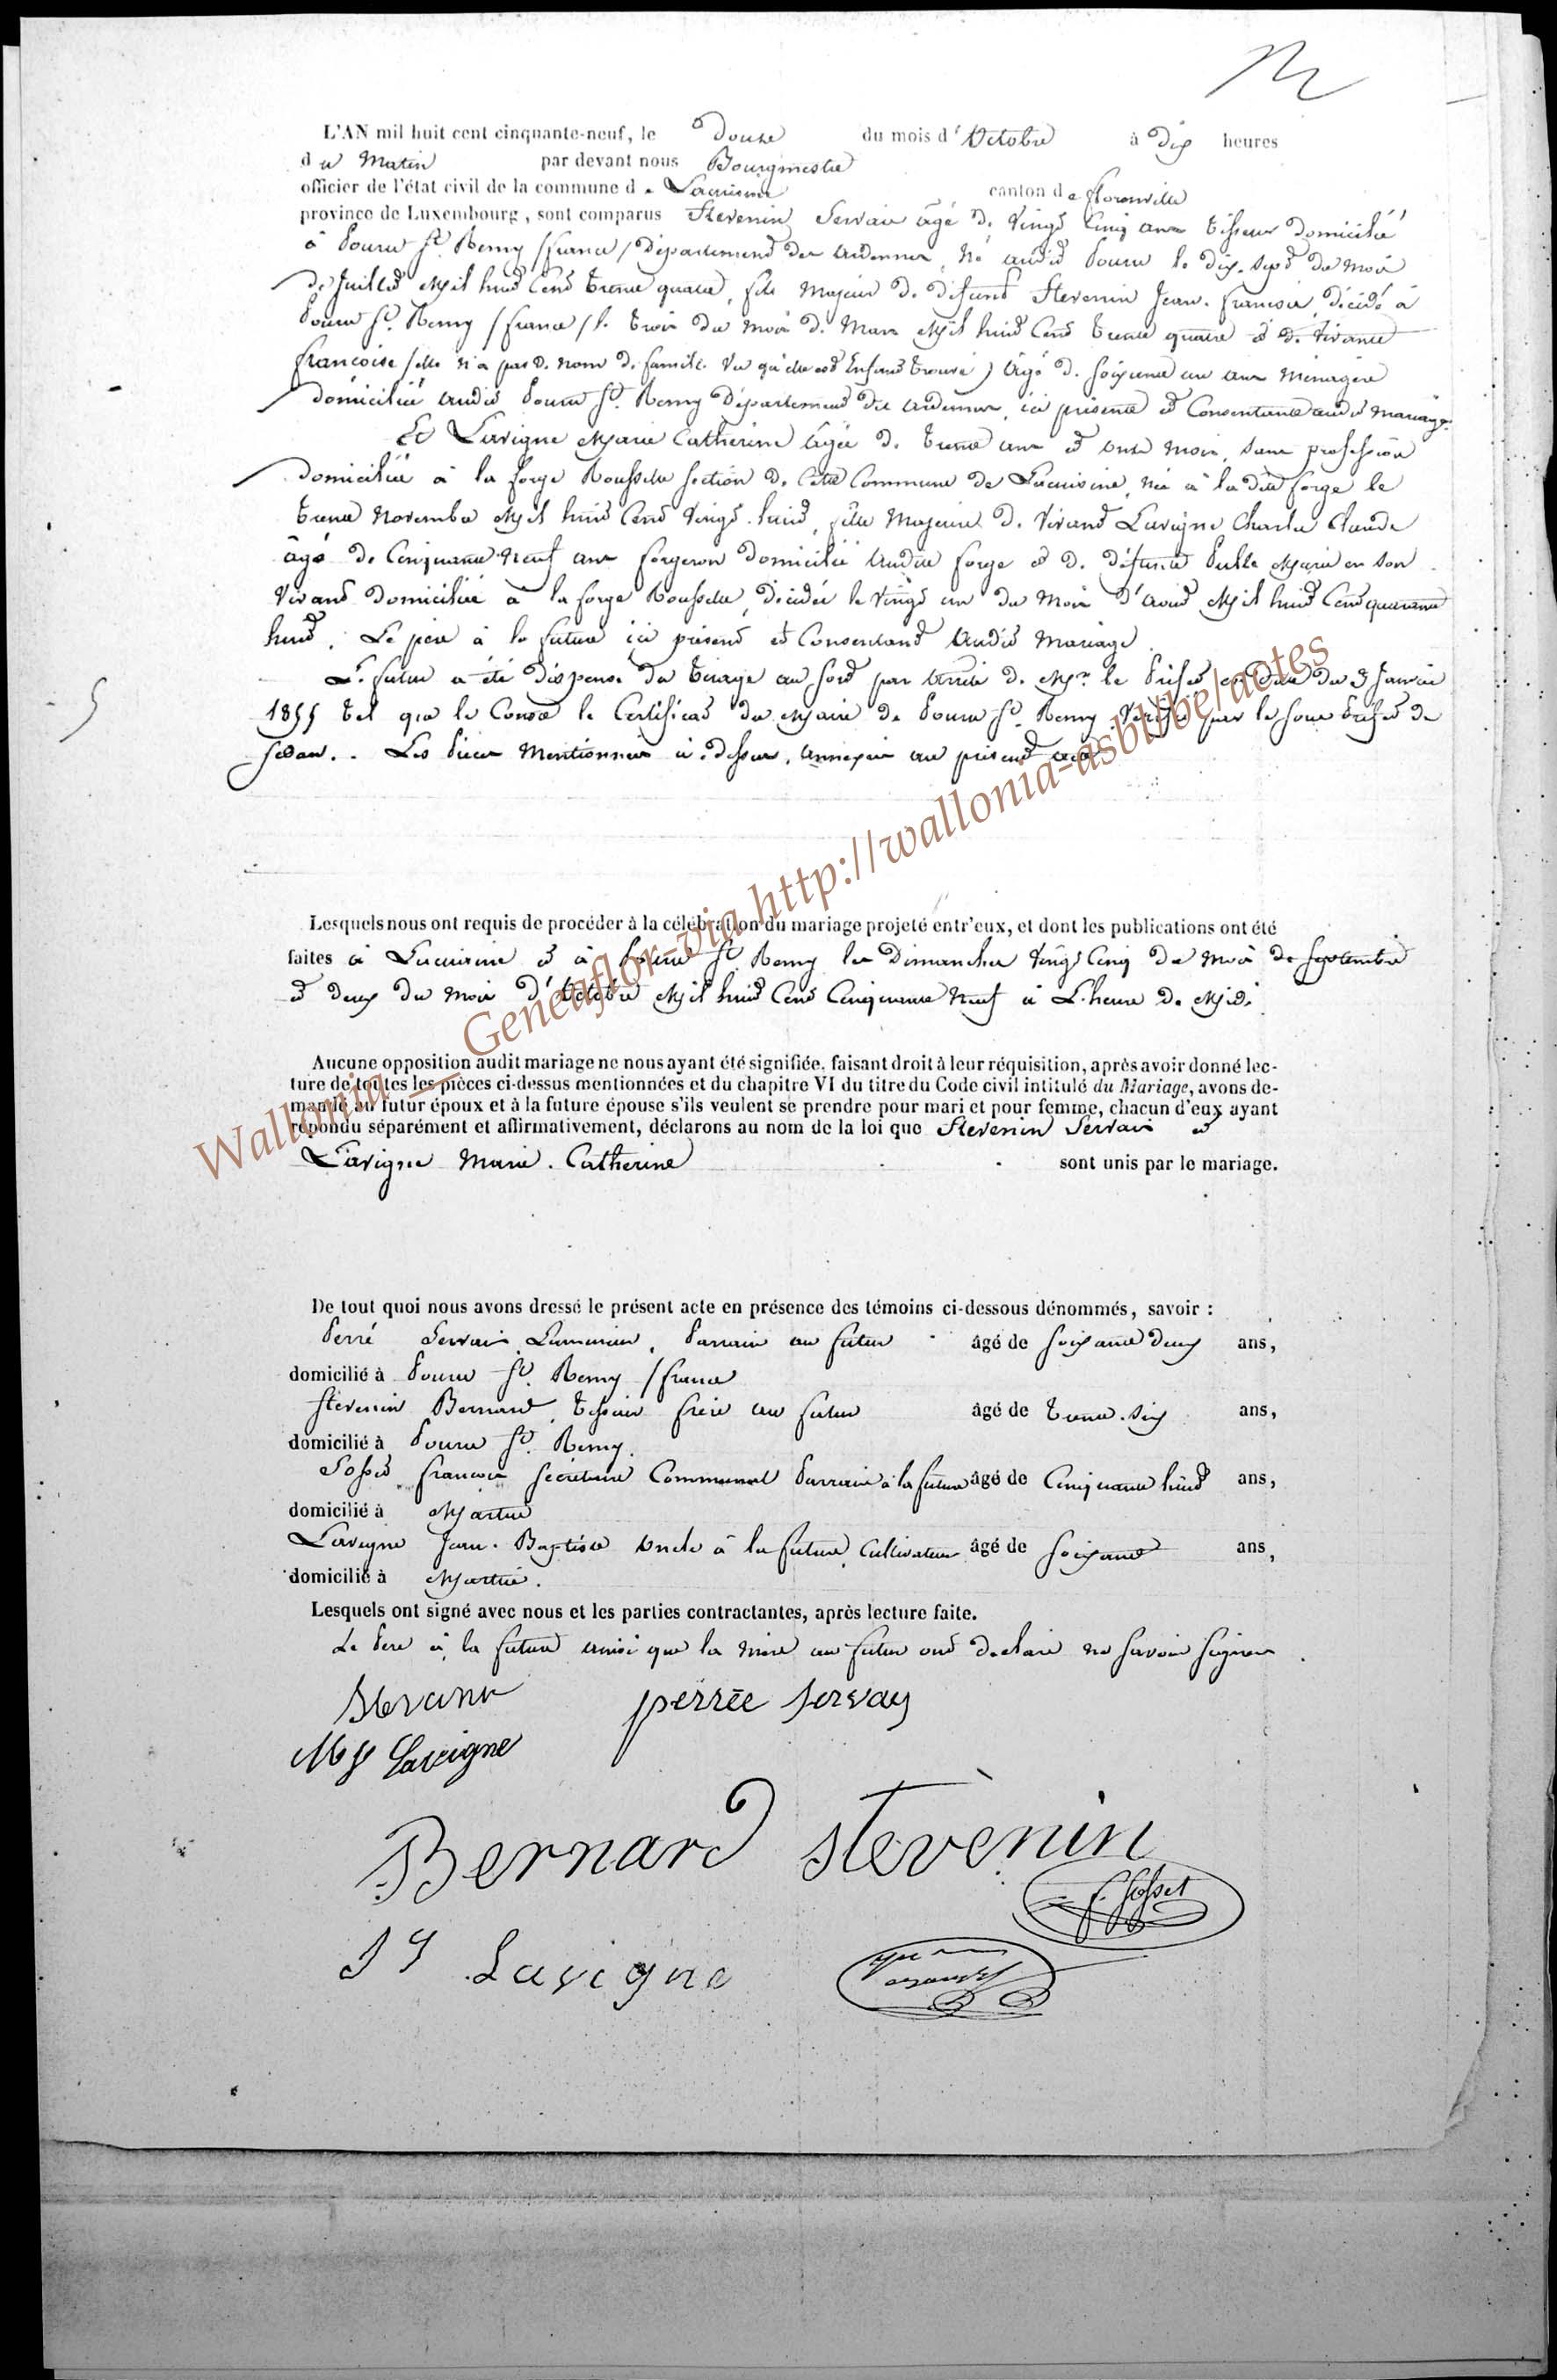 L'AN mil huit cent cinquante-neuf, le Douze du mois d'Octobre à dix heures
du Matin par devant nous Bourgmestre
officier de l'état civil de la commune de Lacuisine canton de florenville
province de Luxembourg, sont comparus Stevenin Servais âgé de Vingt Cinq ans tisseur domicilié
à Pouru St. Remy (france) Département des Ardennes, Né audit Pouru le dix-Sept du Mois
de Juillet Mil huit Cent Trente quatre, fils Majeur de défunt Stevenin Jean-françois, décédé à
Pouru St. Remy (france) le trois du mois de Mars Mil huit Cent Trente quatre et de Vivante
françoise (elle n'a pas de nom de famille vu qu'elle est Enfant trouvé) âgé de Soixante un ans Ménagère
domiciliée audit Pouru St. Remy Département des Ardennes, ici présente et Consentante audit Mariage.
Et Lavigne Marie Catherine âgée de Trente ans et onze mois, sans profession
domiciliée à la forge Roussele section de Cette Commune de Lacuisine, née à la dite forge le
trente Novembre Mil huit Cent Vingt-huit, fille Majeure de Vivant Lavigne Charles Claude
âgé de Cinquante-Neuf ans forgeron domicilié audite forge et de défunte Marie en son
Vivant domiciliée à la forge Roussele, décédée le Vingt un du Mois d'Aout Mil huit Cent quarante
huit. Le père à la future ici présent et Consentant audit Mariage.
Le futur a été dispensé du tirage au sort par arrêté de Mr. le Préfet en date du 3 Janvier
1855 tel que le Conste le Certificat du Maire de Pouru St. Remy Vérifié par le Sous Préfet de
Sedan. Les Pièces Mentionnées ci-dessus, annexées au présent acte
Lesquels nous ont requis de procéder à la célébration du mariage projeté entr'eux, et dont les publications ont été
faites à Lacuisine et à Pouru St. Remy les Dimanches Vingt Cinq du Mois de Septembre
et deux du Mois d'Octobre Mil huit Cent Cinquante Neuf à L'heure de Midi.
Aucune opposition audit mariage ne nous ayant été signifiée, faisant droit à leur réquisition, après avoir donné lec-
ture de toutes les pièces ci-dessus mentionnées et du chapitre VI du titre du Code civil intitulé du Mariage, avons de-
mandé au futur époux et à la future épouse s'ils veulent se prendre pour mari et pour femme, chacun d'eux ayant
répondu séparément et affirmativement, déclarons au nom de la loi que Stevenin Servais et
Lavigne Marie-Catherine sont unis par le mariage.
De tout quoi nous avons dressé le présent acte en présence des témoins ci-dessous dénommés, savoir :
Perré Servais, Parrain au futur âgé de Soixante deux ans,
domicilié à Pouru St. Remy (france
Stevenin Bernard, Tisseur frère au futur âgé de Trente-Six ans,
domicilié à Pouru St. Remy.
Sosset françois secrétaire Communal Parrain à la future âgé de Cinquante huit ans,
domicilié à Martué
Lavigne Jean-Baptiste Oncle à la future, Cultivateur âgé de Soixante ans,
domicilié à Martué.
Lesquels ont signé avec nous et les parties contractantes, après lecture faite.
Le Père à la future ainsi que la mère au futur ont déclaré ne savoir signer.
perrée servais
Lavigne
Bernard stevènin
f. Sosset
Lavigne
Wallonia __ Geneaflor-via http://wallonia-asbl.be/actes